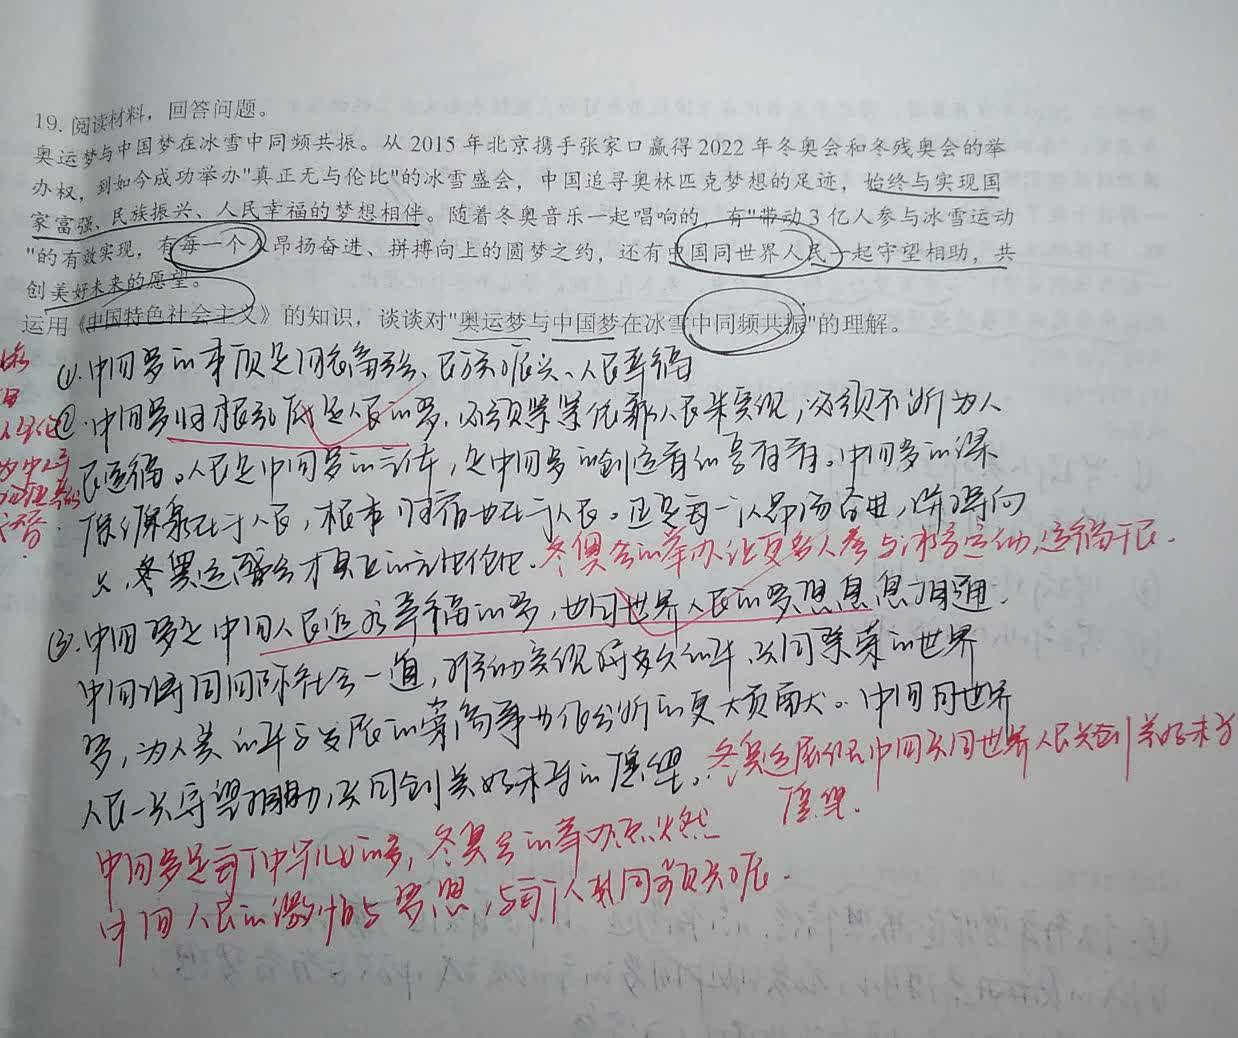 19. 阅读材料，回答问题。
奥运梦与中国梦在冰雪中同频共振。从 2015 年北京携手张家口赢得 2022 年冬奥会和冬残奥会的举
办权，到如今成功举办"真正无与伦比"的冰雪盛会，中国追寻奥林匹克梦想的足迹，始终与实现国
家富强、民族振兴、人民幸福的梦想相伴。随着冬奥音乐一起唱响的，有"带动 3 亿人参与冰雪运动
"的有效实现，有每一个人昂扬奋进、拼搏向上的圆梦之约，还有中国同世界人民一起守望相助，共
创美好未来的愿望。
运用《中国特色社会主义》的知识，谈谈对"奥运梦与中国梦在冰雪中同频共振"的理解。
①.中国梦的本质是国家富强、民族振兴、人民幸福
②.中国梦归根到底是人民的梦，必须紧紧依靠人民来实现，必须不断为人
民造福。人民是中国梦的主体，是中国梦的创造者和享有者。中国梦的深
厚源泉在于人民，根本归宿也在于人民。
冬奥会的举办让更多人参与冰雪运动，造福于民.
③.中国梦是中国人民追求幸福的梦，也同世界人民的梦想息息相通.
中国将同国际社会一道，推动实现持久和平、共同繁荣的世界
梦，为人类和平与发展的崇高事业作出新的更大贡献。中国同世界
人民一起守望相助，共同创美好未来的愿望。
冬奥会展现中国共同世界人民共创美好未来
愿望.
中国梦是每个中华儿女的梦，冬奥会的举办点燃
中国人民的激情与梦想，与每个人都同频共振.